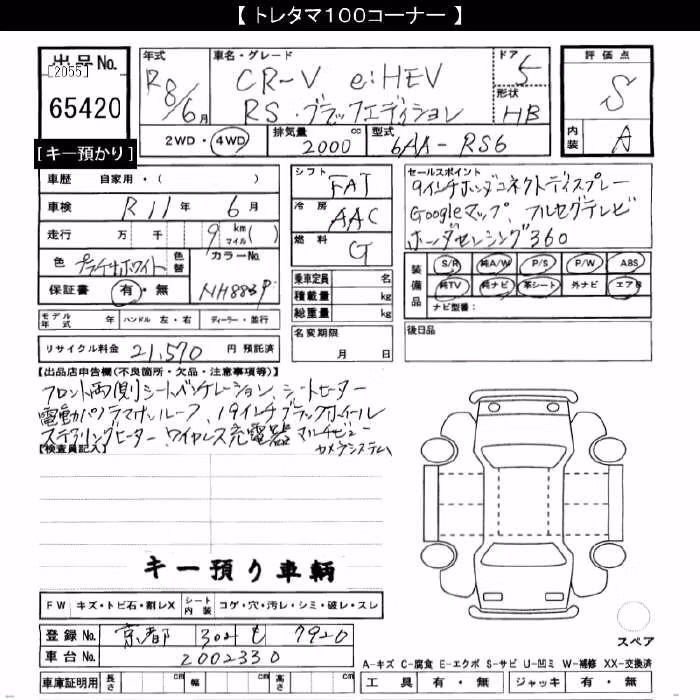 【 トレタマ100コーナー 】
出品No.
[2055]
65420
[キー預かり]
年式
R8/6月
車名・グレード
CR-V e:HEV
RS・ブラックエディション
ドア
5
形状
HB
評価点
S
内装
A
2WD・4WD
排気量 2000 cc
型式 6AA-RS6
車歴 自家用・( )
車検 R11年 6月
走行 万 千 9 km マイル ( )
色 プラチナホワイト 色替
カラーNo. NH883P
保証書 有・無
モデル年式 年 ハンドル 左・右 ディーラー・並行
リサイクル料金 21,570 円 預託済
シフト FAT
冷房 AAC
燃料 G
乗車定員 名
積載量 kg
総重量 kg
名変期限
月 日
セールスポイント
9インチホンダコネクトディスプレー
Googleマップ、フルセグテレビ
ホンダセンシング360
装備品
S/R 純A/W P/S P/W ABS
純TV 純ナビ 革シート 外ナビ エアB
ナビ型番:
後日品
【出品店申告欄(不良箇所・欠品・注意事項等)】
フロント両側シートベンチレーション、シートヒーター
電動パノラマサンルーフ、19インチブラックホイール
ステアリングヒーター、ワイヤレス充電器 マルチビュー
カメラシステム
【検査員記入】
キー預り車輌
FW キズ・トビ石・割レX シート内装 コゲ・穴・汚レ・シミ・破レ・スレ
登録No. 京都 302 も 7920
車台No. 2002330
車庫証明用 長さ cm 幅 cm 高さ cm
スペア
A-キズ C-腐食 E-エクボ S-サビ U-凹ミ W-補修 XX-交換済
工具 有・無 ジャッキ 有・無